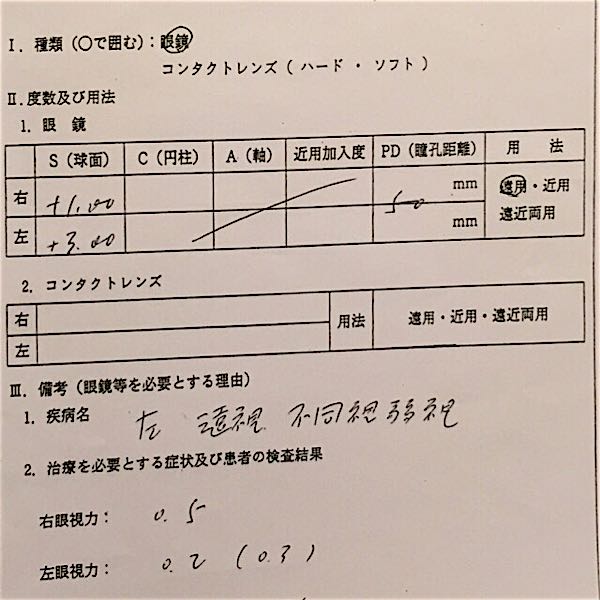 Ⅰ. 種類（〇で囲む）: 眼鏡
コンタクトレンズ（ ハード ・ ソフト ）
Ⅱ. 度数及び用法
1. 眼 鏡
S（球面） C（円柱） A（軸） 近用加入度 PD（瞳孔距離） 用 法
右 +1.00 mm 遠用・近用
50
左 +3.00 mm 遠近両用
2. コンタクトレンズ
右
用法 遠用・近用・遠近両用
左
Ⅲ. 備考（眼鏡等を必要とする理由）
1. 疾病名 左 遠視 不同視弱視
2. 治療を必要とする症状及び患者の検査結果
右眼視力: 0.5
左眼視力: 0.2 (0.3)